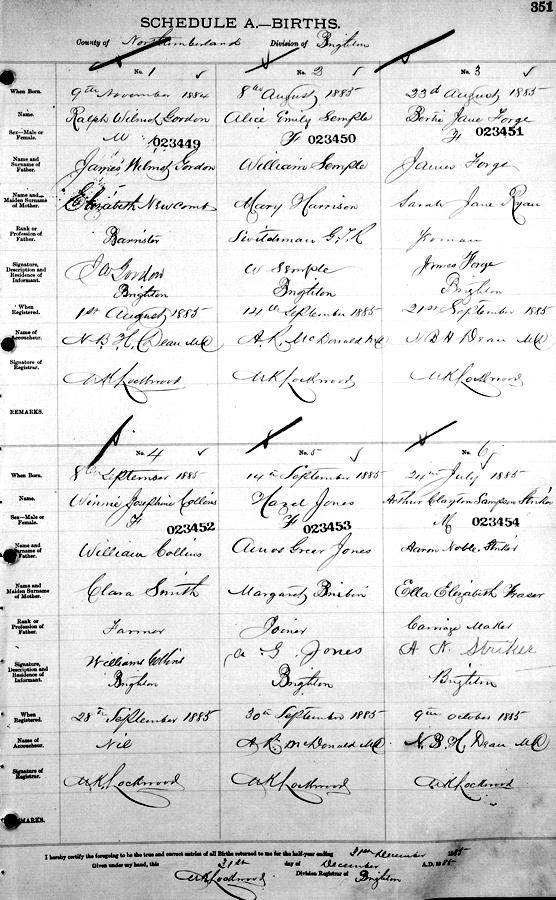 351
SCHEDULE A.—BIRTHS.
County of Northumberland Division of Brighton
No. 1 No. 2 No. 3
When Born. 9th November 1884 8th August 1885 23d August 1885
Name. Ralph Wilmot Gordon Alice Emily Semple Bertie Jane Forge
Sex—Male or Female. M 023449 F 023450 F 023451
Name and Surname of Father. James Wilmot Gordon William Semple James Forge
Name and Maiden Surname of Mother. Elizabeth Newcomb Mary Harrison Sarah Jane Ryan
Rank or Profession of Father. Barrister Switchman G.T.R Yeoman
Signature, Description and Residence of Informant. J W Gordon W Semple James Forge
Brighton Brighton Brighton
When Registered. 1st August 1885 14th September 1885 21st September 1885
Name of Accoucheur. N.B.H. Dean MD A.R. McDonald MD N B H Dean MD
Signature of Registrar. W K Lockwood W K Lockwood W K Lockwood
REMARKS.
No. 4 No. 5 No. 6
When Born. 8th September 1885 14th September 1885 24th July 1885
Name. Winnie Josephine Collins Hazel Jones Arthur Clayton Sampson Striker
Sex—Male or Female. F 023452 F 023453 M 023454
Name and Surname of Father. William Collins Amos Greer Jones Aaron Noble Striker
Name and Maiden Surname of Mother. Clara Smith Margaret Brisbin Ella Elizabeth Fraser
Rank or Profession of Father. Farmer Joiner Carriage Maker
Signature, Description and Residence of Informant. Williams Collins A. G. Jones A N. Striker
Brighton Brighton Brighton
When Registered. 28th September 1885 30th September 1885 9th October 1885
Name of Accoucheur. Nil A R McDonald MD N.B.H. Dean MD
Signature of Registrar. W K Lockwood W K Lockwood W K Lockwood
REMARKS.
I hereby certify the foregoing to be the true and correct entries of all Births returned to me for the half-year ending 31st December 1885
Given under my hand, this 31st day of December A.D. 1885
W K Lockwood Division Registrar of Brighton